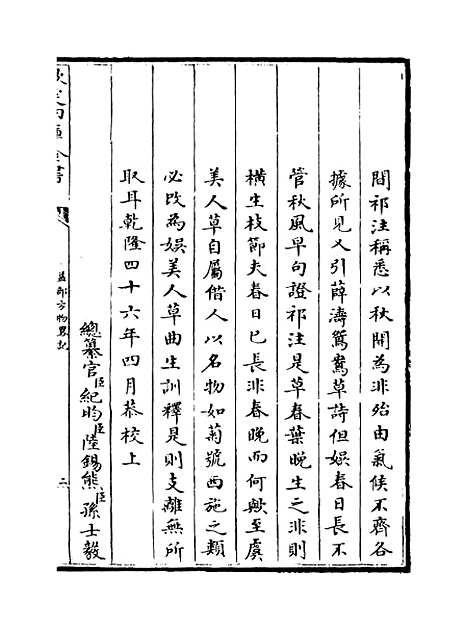 閒祁注稱悉以秋開為非殆由氣候不齊各
據所見又引薛濤鴛鴦草詩但娛春日長不
管秋風早句證祁注是草春葉晚生之非則
横生枝節夫春日已長非春晚而何歟至虞
美人草自屬借人以名物如菊號西施之類
必改為娯美人草曲生訓釋是則支離無所
取耳乾隆四十六年四月恭校上
總纂官臣紀昀臣陸錫熊臣孫士毅
欽定四庫全書
益部方物畧記
二